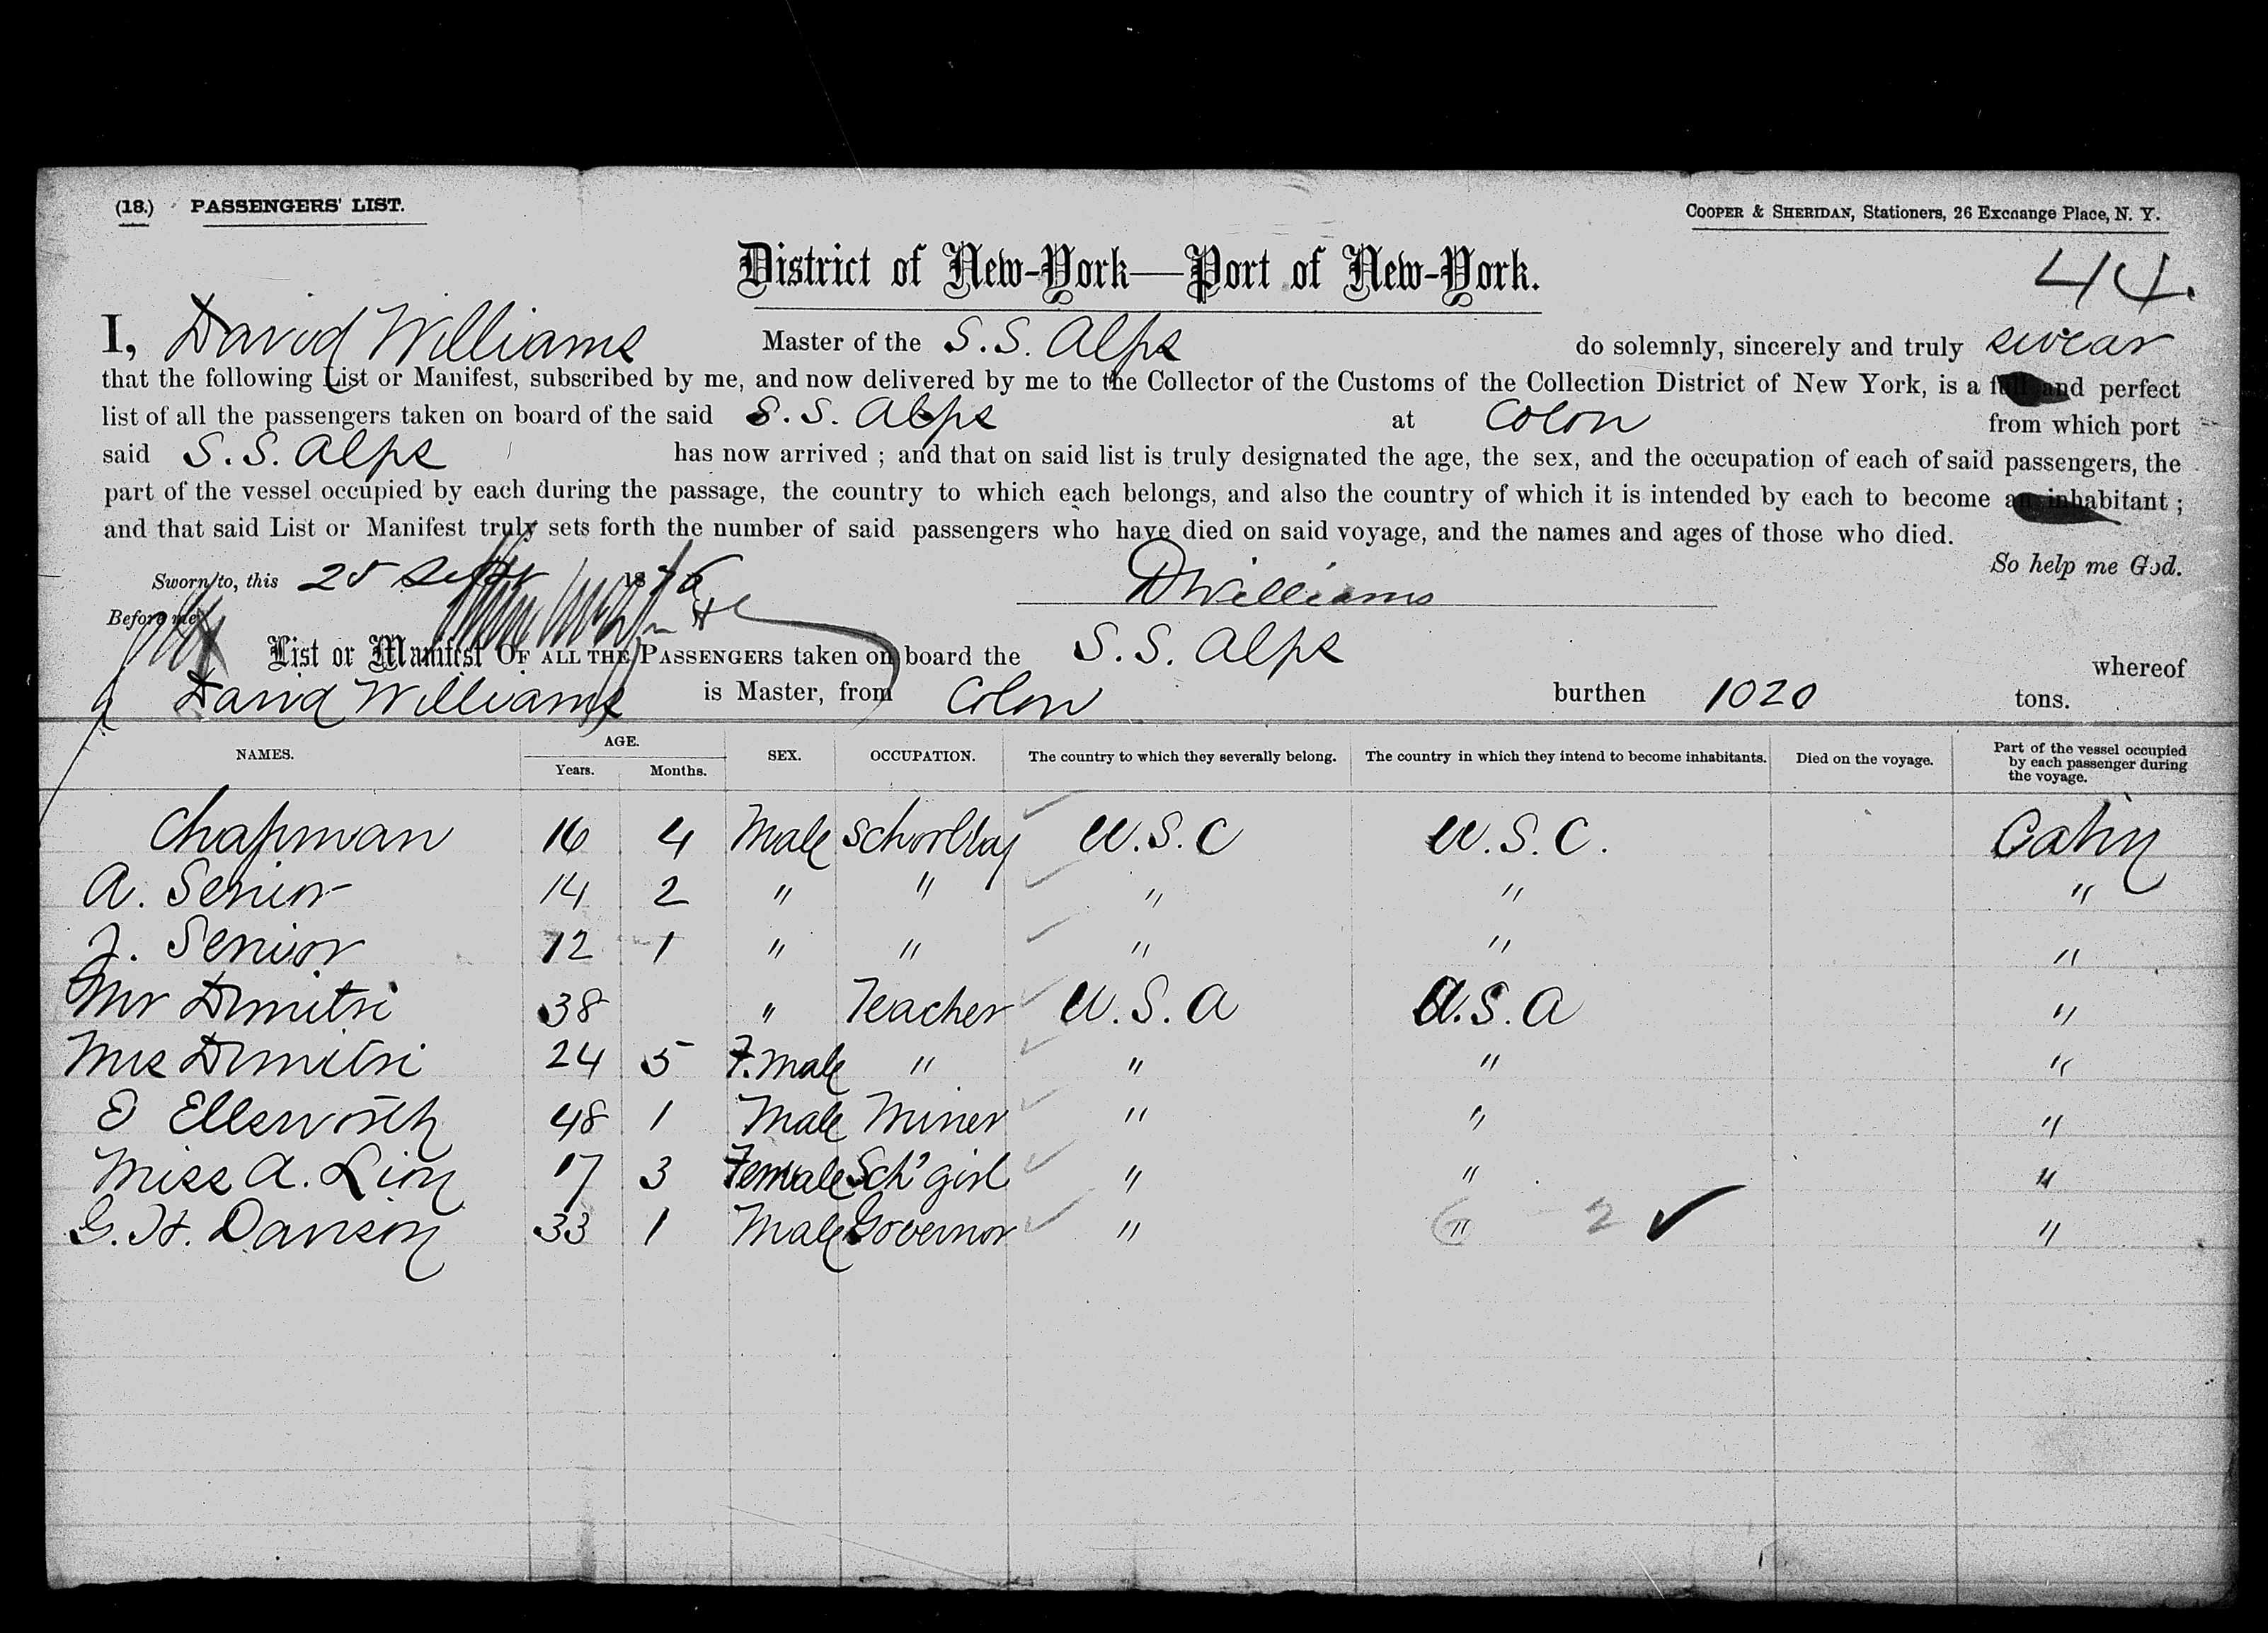 (18.) PASSENGERS' LIST.
COOPER & SHERIDAN, Stationers, 26 Exchange Place, N. Y.
District of New-York—Port of New-York.
44.
I, David Williams Master of the S.S. Alps do solemnly, sincerely and truly swear
that the following List or Manifest, subscribed by me, and now delivered by me to the Collector of the Customs of the Collection District of New York, is a full and perfect
list of all the passengers taken on board of the said S.S. Alps at Colon from which port
said S.S. Alps has now arrived ; and that on said list is truly designated the age, the sex, and the occupation of each of said passengers, the
part of the vessel occupied by each during the passage, the country to which each belongs, and also the country of which it is intended by each to become an inhabitant ;
and that said List or Manifest truly sets forth the number of said passengers who have died on said voyage, and the names and ages of those who died.
So help me God.
Sworn to, this Sept 1876 DWilliams
Before me
List or Manifest OF ALL THE PASSENGERS taken on board the S.S. Alps whereof
David Williams is Master, from Colon burthen 1020 tons.
NAMES. AGE. Years. Months. SEX. OCCUPATION. The country to which they severally belong. The country in which they intend to become inhabitants. Died on the voyage. Part of the vessel occupied by each passenger during the voyage.
Chapman 16 4 Male Schoolboy U.S.C U.S.C. Cabin
A. Senior 14 2 " " " " "
J. Senior 12 1 " " " " "
Mr Dimitri 38 " Teacher U.S.A U.S.A "
Mrs Dimitri 24 5 F.male " " " "
E Ellsworth 48 1 Male Miner " " "
Miss A. Lion 17 3 Female Sch' girl " " "
G. H. Davison 33 1 Male Governor " " 2 "